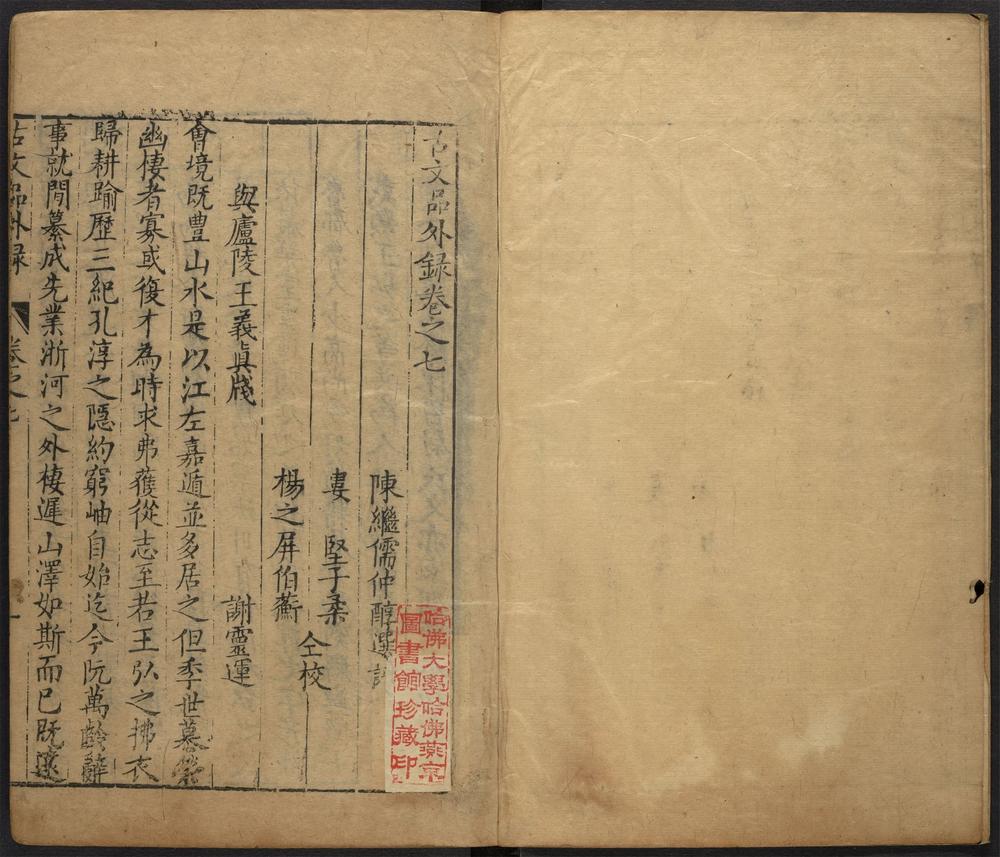 古文品外録卷之七
陳繼儒仲醇選
婁堅子柔
楊之屏伯蘅
仝校
與廬陵王義真牋
謝靈運
會境既豊山水是以江左嘉遁並多居之但季世慕榮
幽棲者寡或復才為時求弗獲從志至若王弘之拂衣
歸耕踰歷三紀孔淳之隱約窮岫自始迄今阮萬齡辭
事就閒纂成先業浙河之外棲遲山澤如斯而已既遠
古文品外録
卷之七
一
哈佛大學哈佛燕京
圖書館珍藏印